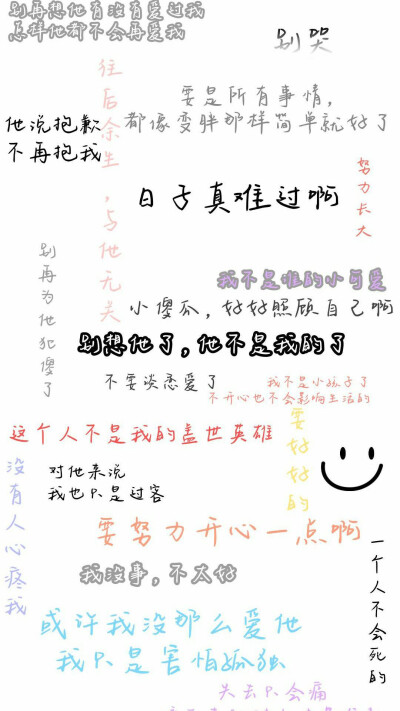 别再想他有没有爱过我
怎样他都不会再爱我
别哭
往后余生，与他无关
要是所有事情，
都像变胖那样简单就好了
他说抱歉
不再抱我
努力长大
日子真难过啊
别再为他犯傻了
我不是谁的小可爱
小傻瓜，好好照顾自己啊
别想他了，他不是我的了
不要谈恋爱了
我不是小孩子了
不开心也不会影响生活的
要好好的
这个人不是我的盖世英雄
没有人心疼我
对他来说
我也只是过客
要努力开心一点啊
一个人不会死的
我没事，不太好
或许我没那么爱他
我只是害怕孤独
失去只会痛